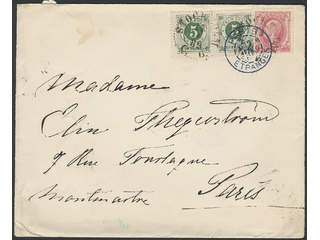 5
5
ETRANGER
Madame
Elin Thegerström
7 Rue Tourlaque
Montmartre
Paris